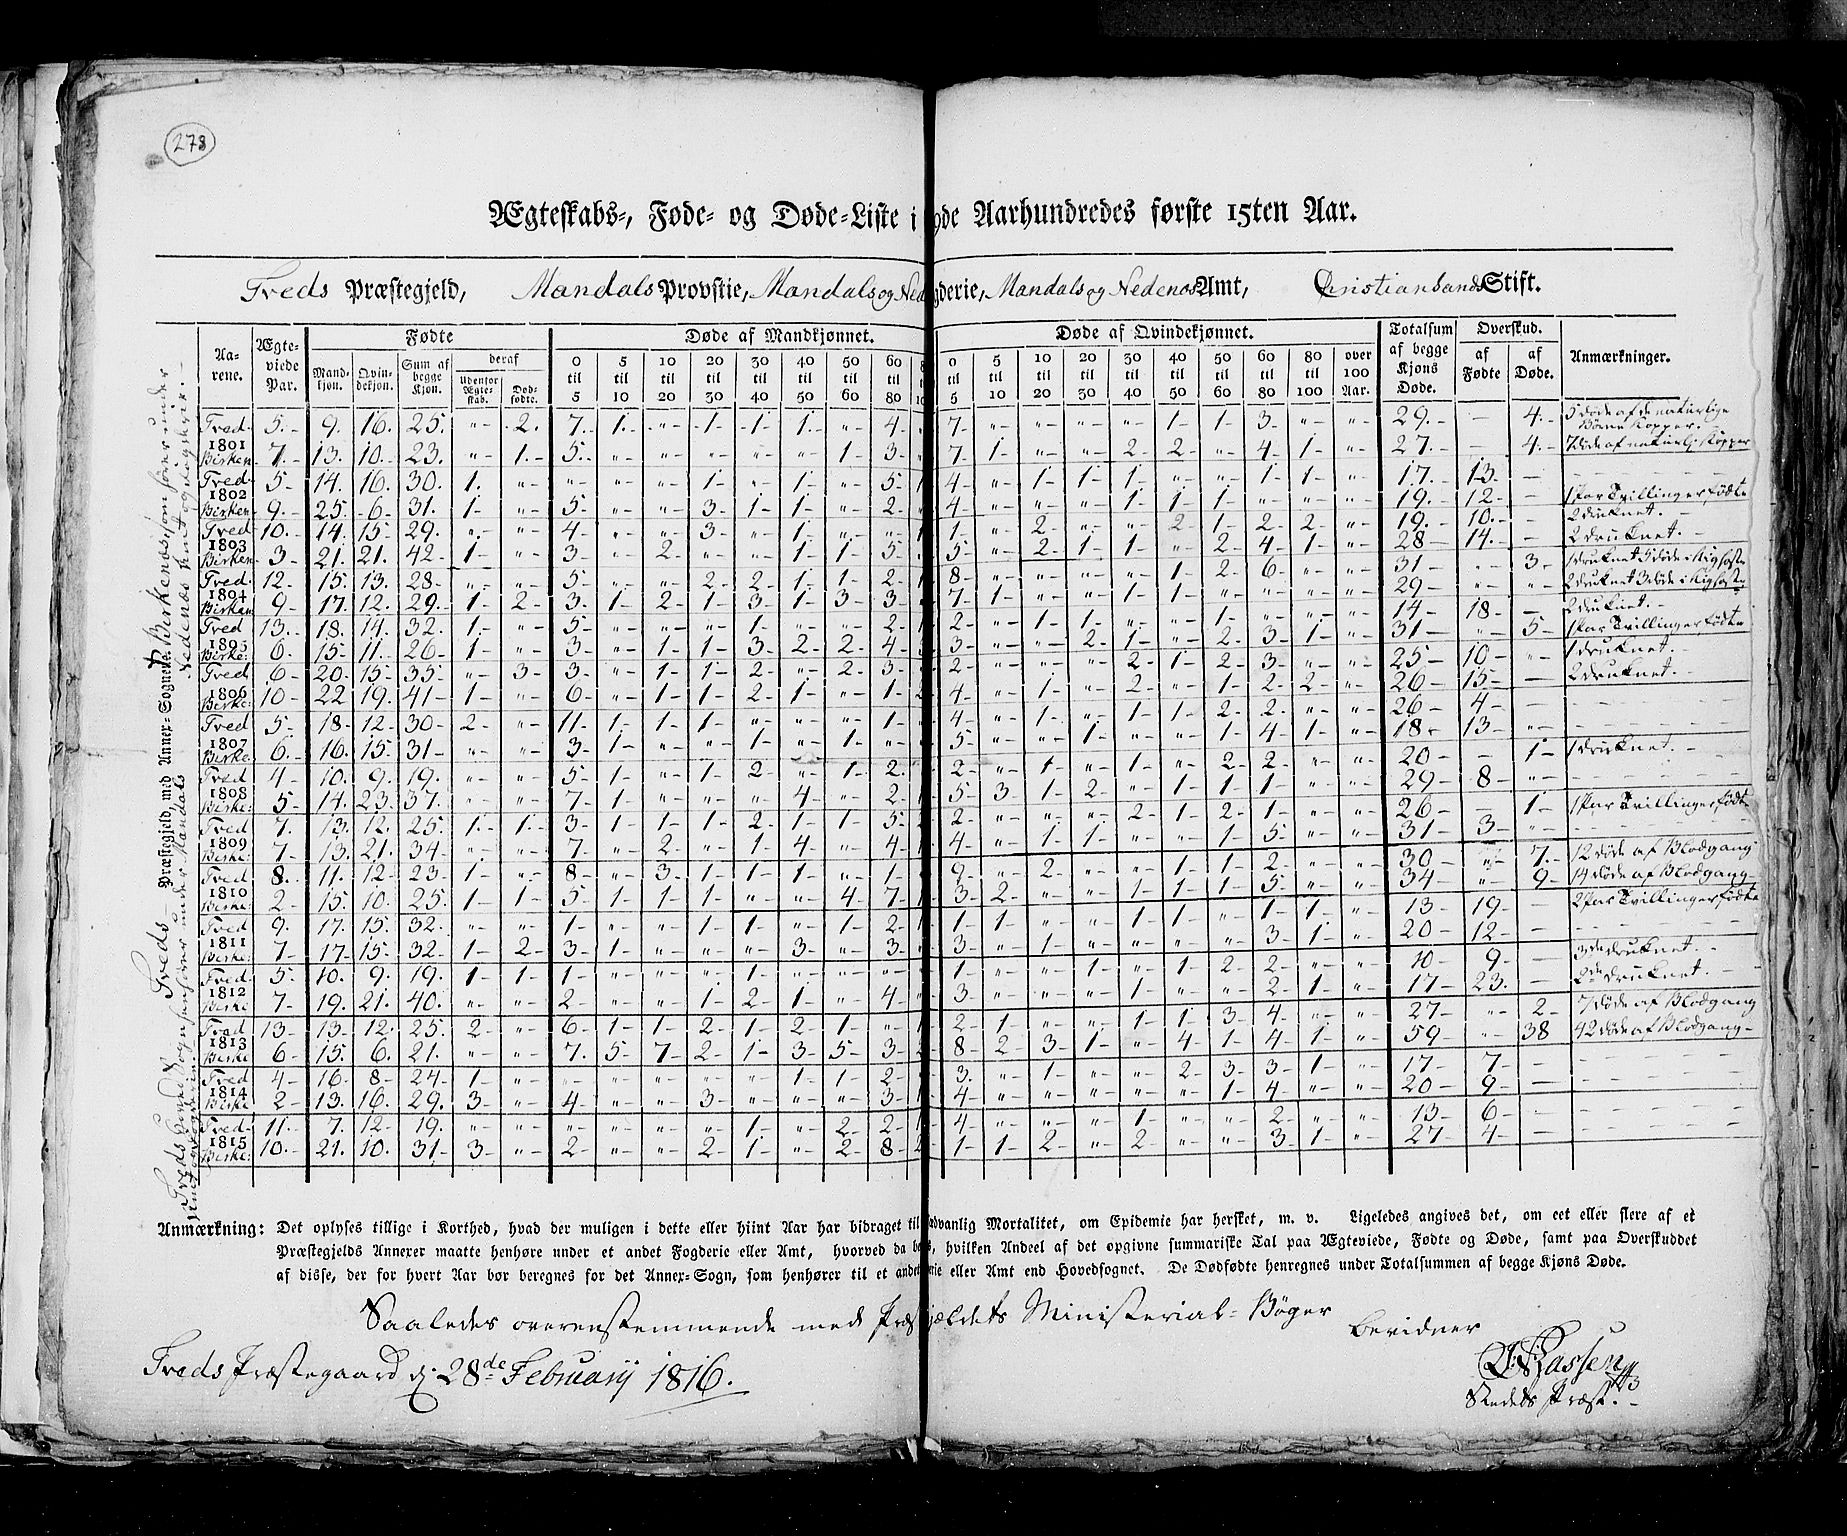 278
Ægteskabs-, Føde- og Døde-Liste i 19de Aarhundredes første 15ten Aar.
Treds Præstegjeld, Mandals Provstie, Mandals og Ned gderie, Mandals og Nedenæs Amt, Christiansands Stift.
Treds Præstegjeld med Annex-Sognene Birkenæs
Aarene. Ægteviede Par. Fødte Døde af Mandkjønnet. Døde af Qvindekjønnet. Totalsum af begge Kjøns Døde. Overskud. Anmærkninger.
Mandkjøn. Qvindekjøn. Sum af begge Kjøn. deraf Udenfor Ægteskab. Dødfødte. 0 til 5 5 til 10 10 til 20 20 til 30 30 til 40 40 til 50 50 til 60 60 til 80 0 til 5 5 til 10 10 til 20 20 til 30 30 til 40 40 til 50 50 til 60 60 til 80 80 til 100 over 100 Aar. af Fødte af Døde.
Tred 5 9 16 25 " 2 7 1 " 1 1 1 " 4 7 " " " " 1 1 3 " " 29 — 4 5 døde af de naturlige Børne Kopper.
1801
Birken 7 13 10 23 " 1 5 " " " " " 1 3 7 1 " " 2 2 " 4 1 " 27 — 4 7 døde af naturl: Kopper
Tred 5 14 16 30 1 " " " " 1 " 1 " 5 4 " 1 1 1 " " 1 1 " 17 13 —
1802
Birken 9 25 6 31 1 " 5 " " 3 1 1 " 2 4 " " " 1 1 1 " " " 19 12 — 1 Par Tvillinger fødte
Tred 10 14 15 29 " " 4 " " 3 " 1 " " 1 " 2 " " 2 1 2 2 " 19 10 — 2 druknet.
1803
Birken 3 21 21 42 1 " 3 " 2 " " 1 1 5 5 " 2 1 1 " 2 4 1 " 28 14 — 2 druknet.
Tred 12 15 13 28 " " 5 " " 2 2 1 1 2 8 " " " " 1 2 6 " " 31 " 3 1 druknet
1804
Birken 9 17 12 29 1 2 3 1 2 1 3 1 3 3 7 1 " " 1 1 " " " " 29 " " 2 druknet
Tred 13 18 14 32 1 " 5 " " " 1 " " 2 2 " 1 1 " " 1 " " " 14 18 — 2 druknet.
1805
Birke: 6 15 11 26 1 " 3 " 1 1 3 2 2 4 3 " " 2 1 " 2 3 1 " 31 " 5 1 Par Tvillinger fødte
Tred 6 20 15 35 " 3 3 " 1 1 2 " 2 3 2 " " " 2 1 2 3 " " 25 10 " 1 druknet.
1806
Birke: 10 22 19 41 1 " 6 " 1 1 2 1 " 1 4 " 1 " 2 " 1 2 2 " 26 15 — 2 druknet.
Tred 5 18 12 30 2 " 11 1 1 1 " " " 1 4 " 1 " 1 1 2 2 " " 26 4 —
1807
Birke: 6 16 15 31 " " 3 1 " " 1 " 1 " 5 " " 1 " " 1 4 1 " 18 13 "
Tred 4 10 9 19 " " 5 1 " 1 2 " 1 2 2 " 1 " 1 " 2 2 " " 20 — 1 1 druknet.
1808
Birke: 5 14 23 37 " " 7 1 " " " 4 " 2 5 3 1 2 " 1 1 1 " " 29 8 "
Tred 7 13 12 25 1 1 3 1 1 1 2 1 1 5 2 " " " 2 1 2 1 " " 26 — 1 1 Par Tvillinger fødte
1809
Birke: 7 13 21 34 " " 7 " 2 " 1 4 " 4 4 " 1 1 " " 1 5 " " 31 3 "
Tred 8 11 12 23 1 " 8 " 3 1 1 1 " 1 9 " 2 " " 1 1 2 " " 30 " 7 12 døde af Blodgang
1810
Birke: 2 15 10 25 1 1 5 1 1 1 " " 4 7 3 2 " " 1 1 1 5 " " 34 " 9 14 døde af Blodgang
Tred 9 17 15 32 " " 1 " " " 1 " 1 2 1 1 " " 1 1 " 1 1 " 13 19 — 2 Par Tvillinger fødte
1811
Birke: 7 17 15 32 1 2 3 1 " " " 3 " 3 3 " 1 " " " " 3 1 " 20 12 —
Tred 5 10 9 19 1 1 1 " " " " " " " 1 " " 1 " 1 2 2 " " 10 9 — 3de druknet.
1812
Birke 7 19 21 40 " " 2 " " 1 2 1 " 4 3 " " " 1 " " 2 1 " 17 23 — 2de druknet
Tred 13 13 12 25 2 " 6 1 1 2 1 2 1 " 2 1 " " 1 1 3 4 " " 27 " 2 7 døde af Blodgang
1813
Birke 6 15 6 21 " " 7 5 7 2 1 3 5 3 8 2 3 1 " 4 1 4 1 " 59 " 38 42 døde af Blodgang
Tred 4 16 8 24 1 " " " " " " 1 1 2 3 " 1 " " 2 3 3 1 " 17 7 —
1814
Birke 2 13 16 29 3 " 4 " " 3 " " " 3 4 " " " " " 1 4 " " 20 9 —
Tred 11 7 12 19 " " " " " " 1 " 2 2 4 " " " 1 " " 2 " " 13 6 —
1815
Birke: 10 21 10 31 3 " 2 " " 2 1 " 2 8 1 1 2 " 2 " " 3 1 " 27 4 —
Anmærkning: Det oplyses tillige i Korthed, hvad der muligen i dette eller hiint Aar har bidraget til sædvanlig Mortalitet, om Epidemie har hersket, m. v. Ligeledes angives det, om eet eller flere af et
Præstegjelds Annexer maatte henhøre under et andet Fogderie eller Amt, hvorved da bes, hvilken Andeel af det opgivne summariske Tal paa Ægteviede, Fødte og Døde, samt paa Overskuddet
af disse, der for hvert Aar bør beregnes for det Annex-Sogn, som henhører til et andet erie eller Amt end Hovedsognet. De Dødfødte henregnes under Totalsummen af begge Kjøns Døde.
Saaledes overensstemmende med Præstgjældets Ministerial-Bøger
bevidner
Treds Præstegaard d: 28de Februarij 1816.
Stedets Præst.